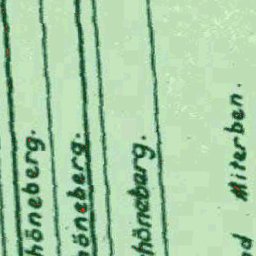 höneberg.
öneberg.
höneberg.
d Miterben.